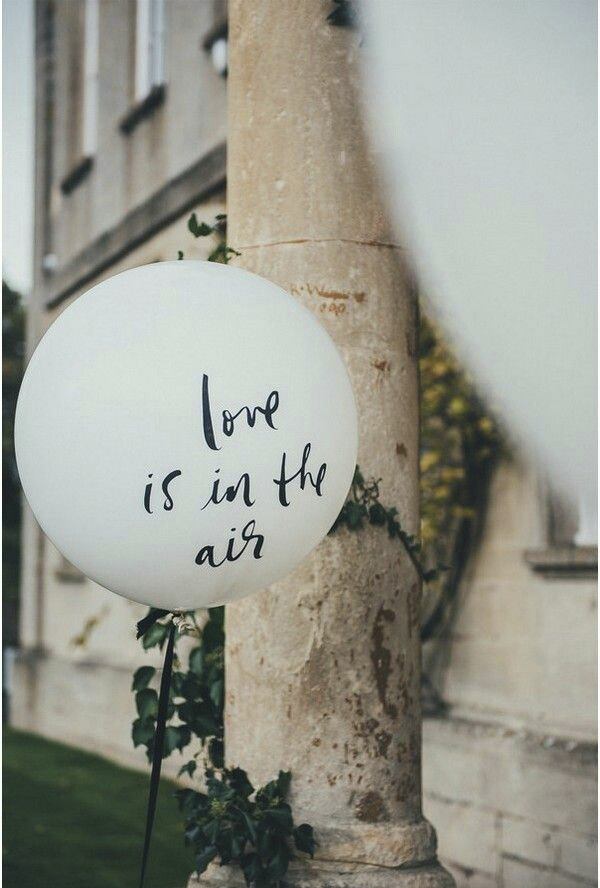 love
is in the
air